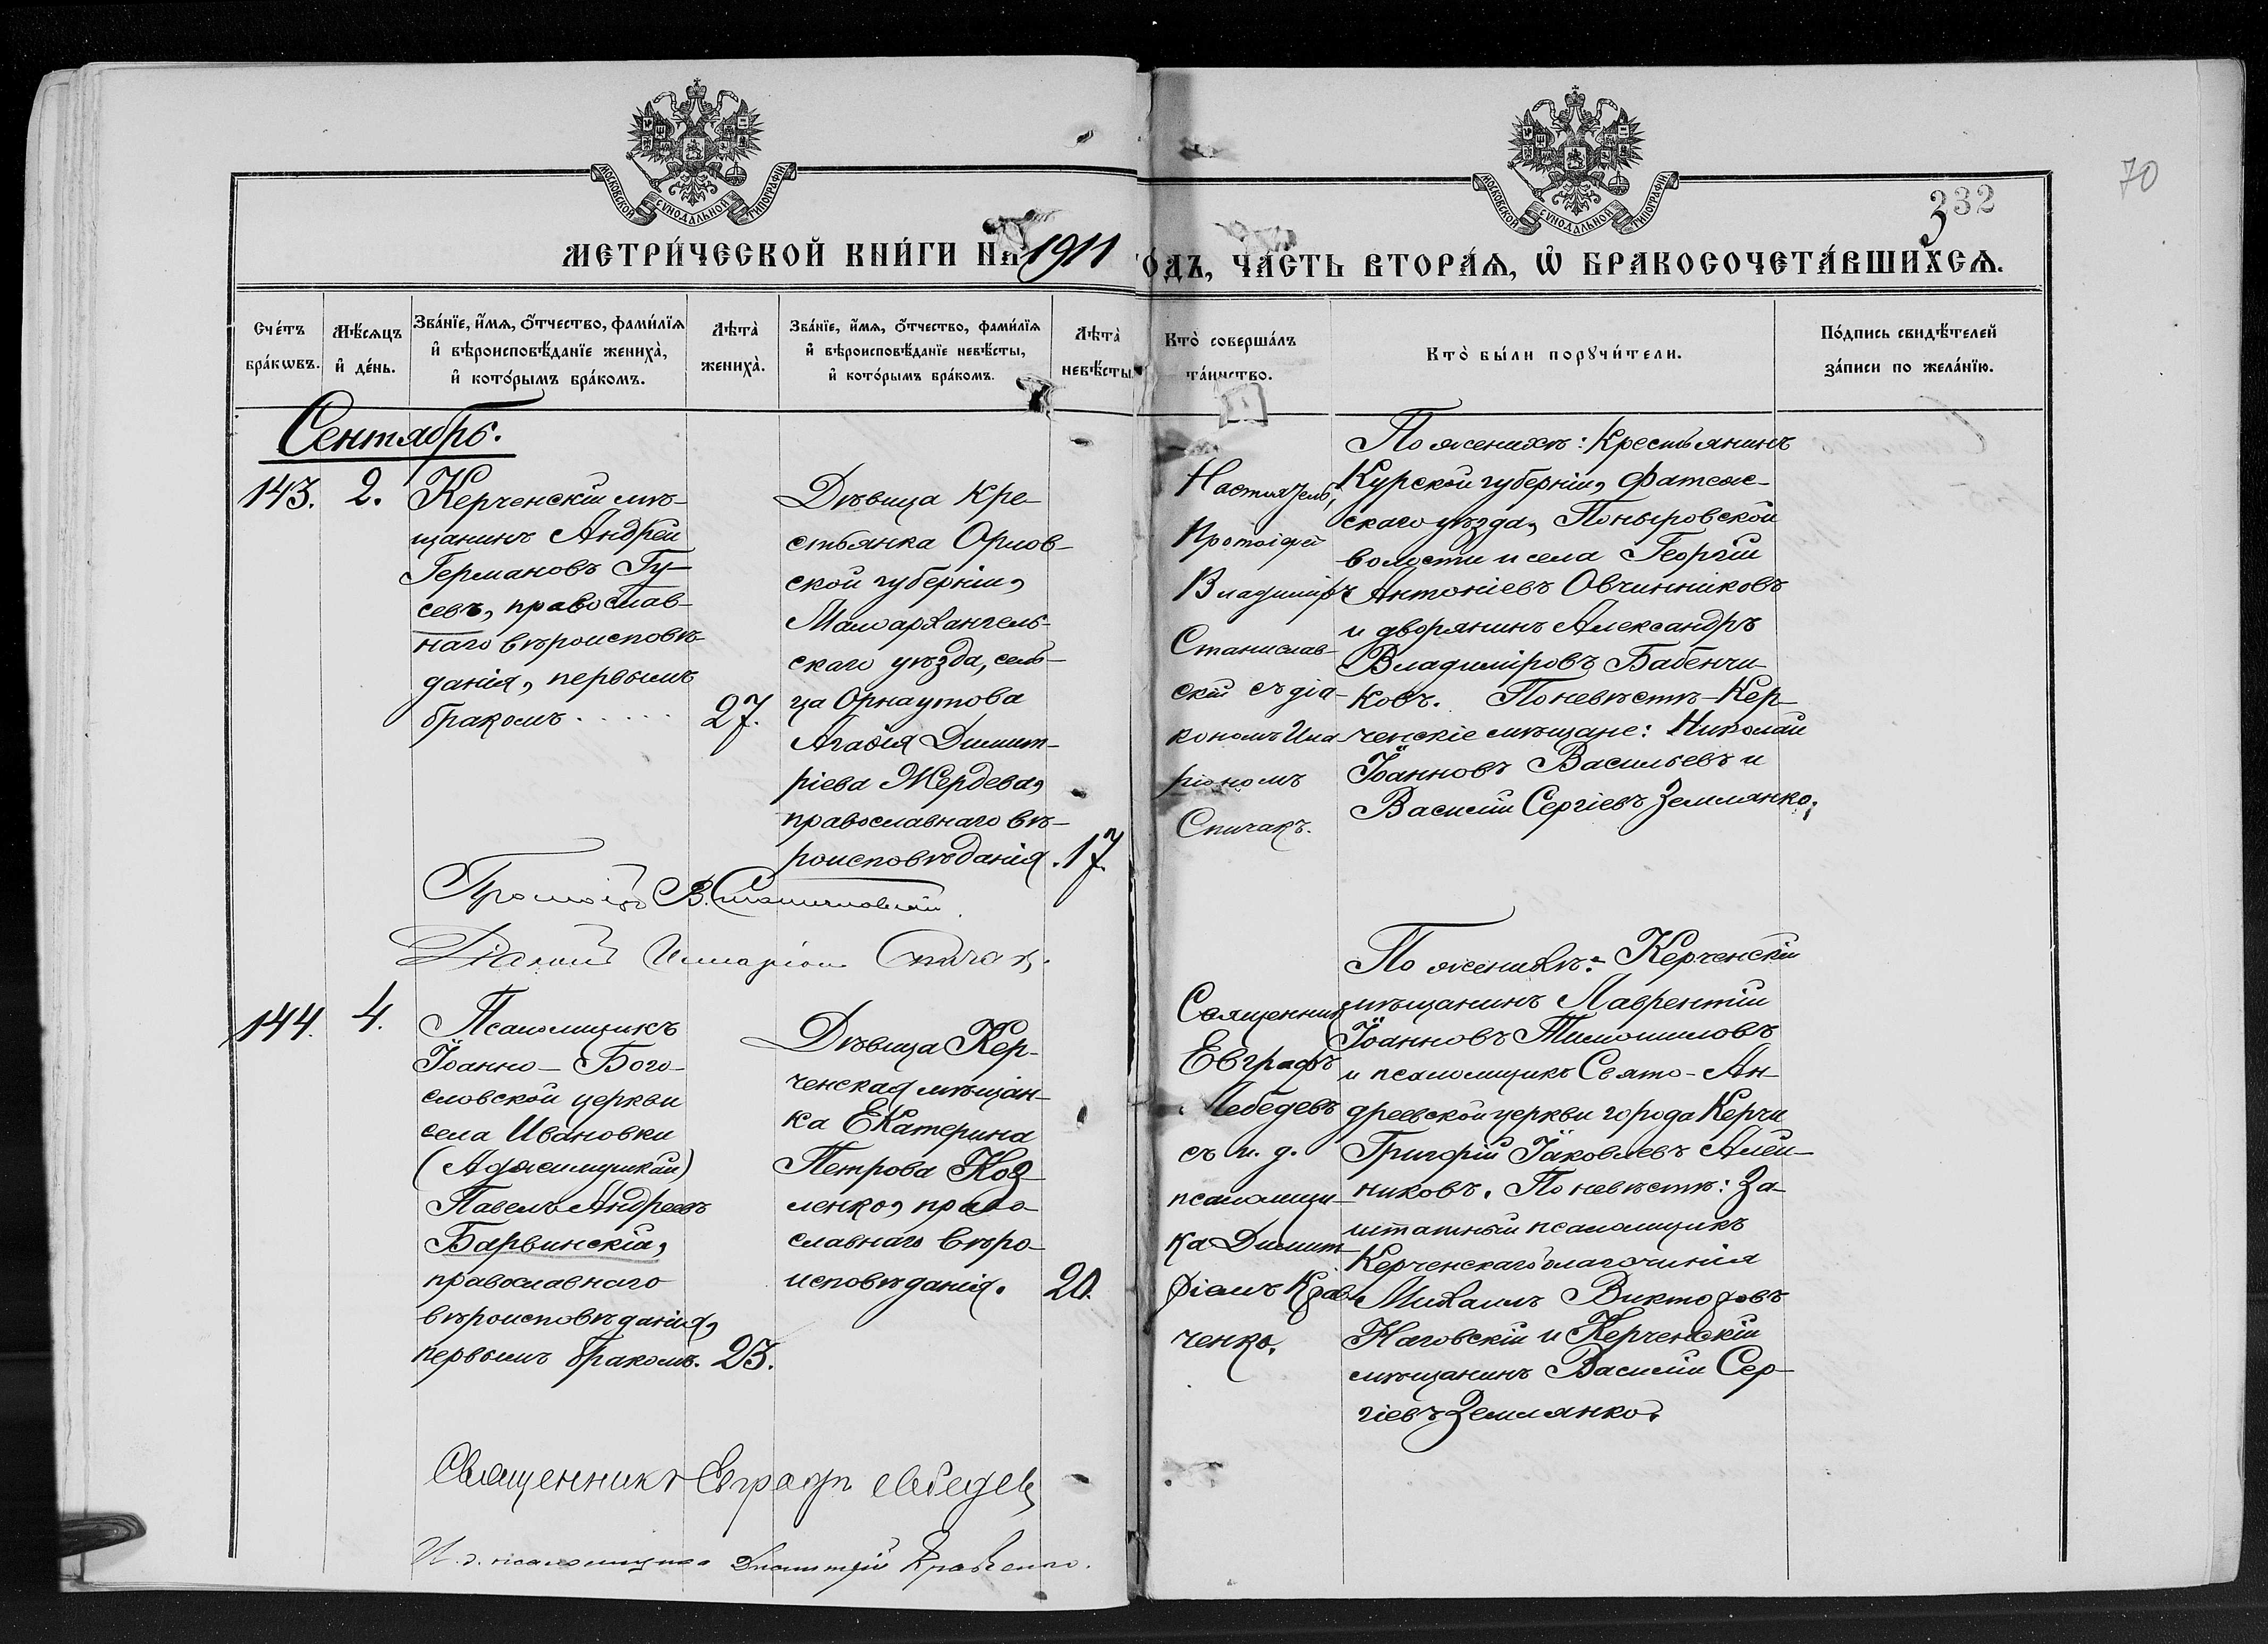 МОСКОВСКОЙ СѴНОДАЛЬНОЙ ТИПОГРАФІИ
МОСКОВСКОЙ СѴНОДАЛЬНОЙ ТИПОГРАФІИ
70
332
МЕТРИ́ЧЕСКОЙ КНИ́ГИ НА 1911 ГО́ДЪ, ЧА́СТЬ ВТОРА́Ѧ, Ѡ҆ БРАКОСОЧЕТА́ВШИХСѦ.
Сче́тъ
бра́кѡвъ.
Мѣ́сѧцъ
и҆ де́нь.
Зва́нїе, и҆́мѧ, ѻ҆́тчество, фами́лїѧ
и҆ вѣроисповѣ́данїе жениха̀,
и҆ кото́рымъ бра́комъ.
Лѣта̀
жениха̀.
Зва́нїе, и҆́мѧ, ѻ҆́тчество, фами́лїѧ
и҆ вѣроисповѣ́данїе невѣ́сты,
и҆ кото́рымъ бра́комъ.
Лѣта̀
невѣ́сты.
Кто̀ соверша́лъ
та́инство.
Кто̀ бы́ли порꙋчи́тели.
По́дпись свидѣ́телей
за́писи по жела́нїю.
Сентябрь.
143.
2.
Керченскій мѣ-
щанинъ Андрей
Германовъ Гу-
севъ, православ-
наго вѣроисповѣ-
данія, первымъ
бракомъ . . . . .
27.
Дѣвица кре-
стьянка Орлов-
ской губерніи,
Малоархангель-
скаго уѣзда, сель-
ца Орнаутова
Агафія Димит-
ріева Жердева,
православнаго вѣ-
роисповѣданія.
17.
Настоятель,
Протоіерей
Владиміръ
Станислав-
скій съ діа-
кономъ Ила-
ріономъ
Спичакъ.
По женихѣ: Крестьянинъ
Курской губерніи, Фатеж-
скаго уѣзда, Поныровской
волости и села Георгій
Антоніевъ Овчинниковъ
и дворянинъ Александръ
Владиміровъ Бабенчи-
ковъ. По невѣстѣ - Кер-
ченскіе мѣщане: Николай
Іоанновъ Васильевъ и
Василій Сергіевъ Землянко;
Протоіерей В. Станиславскій
Діаконъ Иларіонъ Спичакъ.
144.
4.
Псаломщикъ
Іоанно-Бого-
словской церкви
села Ивановки
(Аджимушкай)
Павелъ Андреевъ
Барвинскій,
православнаго
вѣроисповѣданія,
первымъ бракомъ.
23.
Дѣвица Кер-
ченская мѣщан-
ка Екатерина
Петрова Коз-
ленко, право-
славнаго вѣро-
исповѣданія.
20.
Священникъ
Евграфъ
Лебедевъ
съ и. д.
псаломщи-
ка Димит-
ріемъ Крав-
ченко.
По женихѣ: Керченскій
мѣщанинъ Лаврентій
Іоанновъ Тимошиловъ
и псаломщикъ Свято-Ан-
дреевской церкви города Керчи
Григорій Іаковлевъ Алей-
никовъ. По невѣстѣ: За-
штатный псаломщикъ
Керченскаго благочинія
Михаилъ Викторовъ
Наговскій и Керченскій
мѣщанинъ Василій Сер-
гіевъ Землянко.
Священникъ Евграфъ Лебедевъ
И. д. псаломщика Димитрій Кравченко.